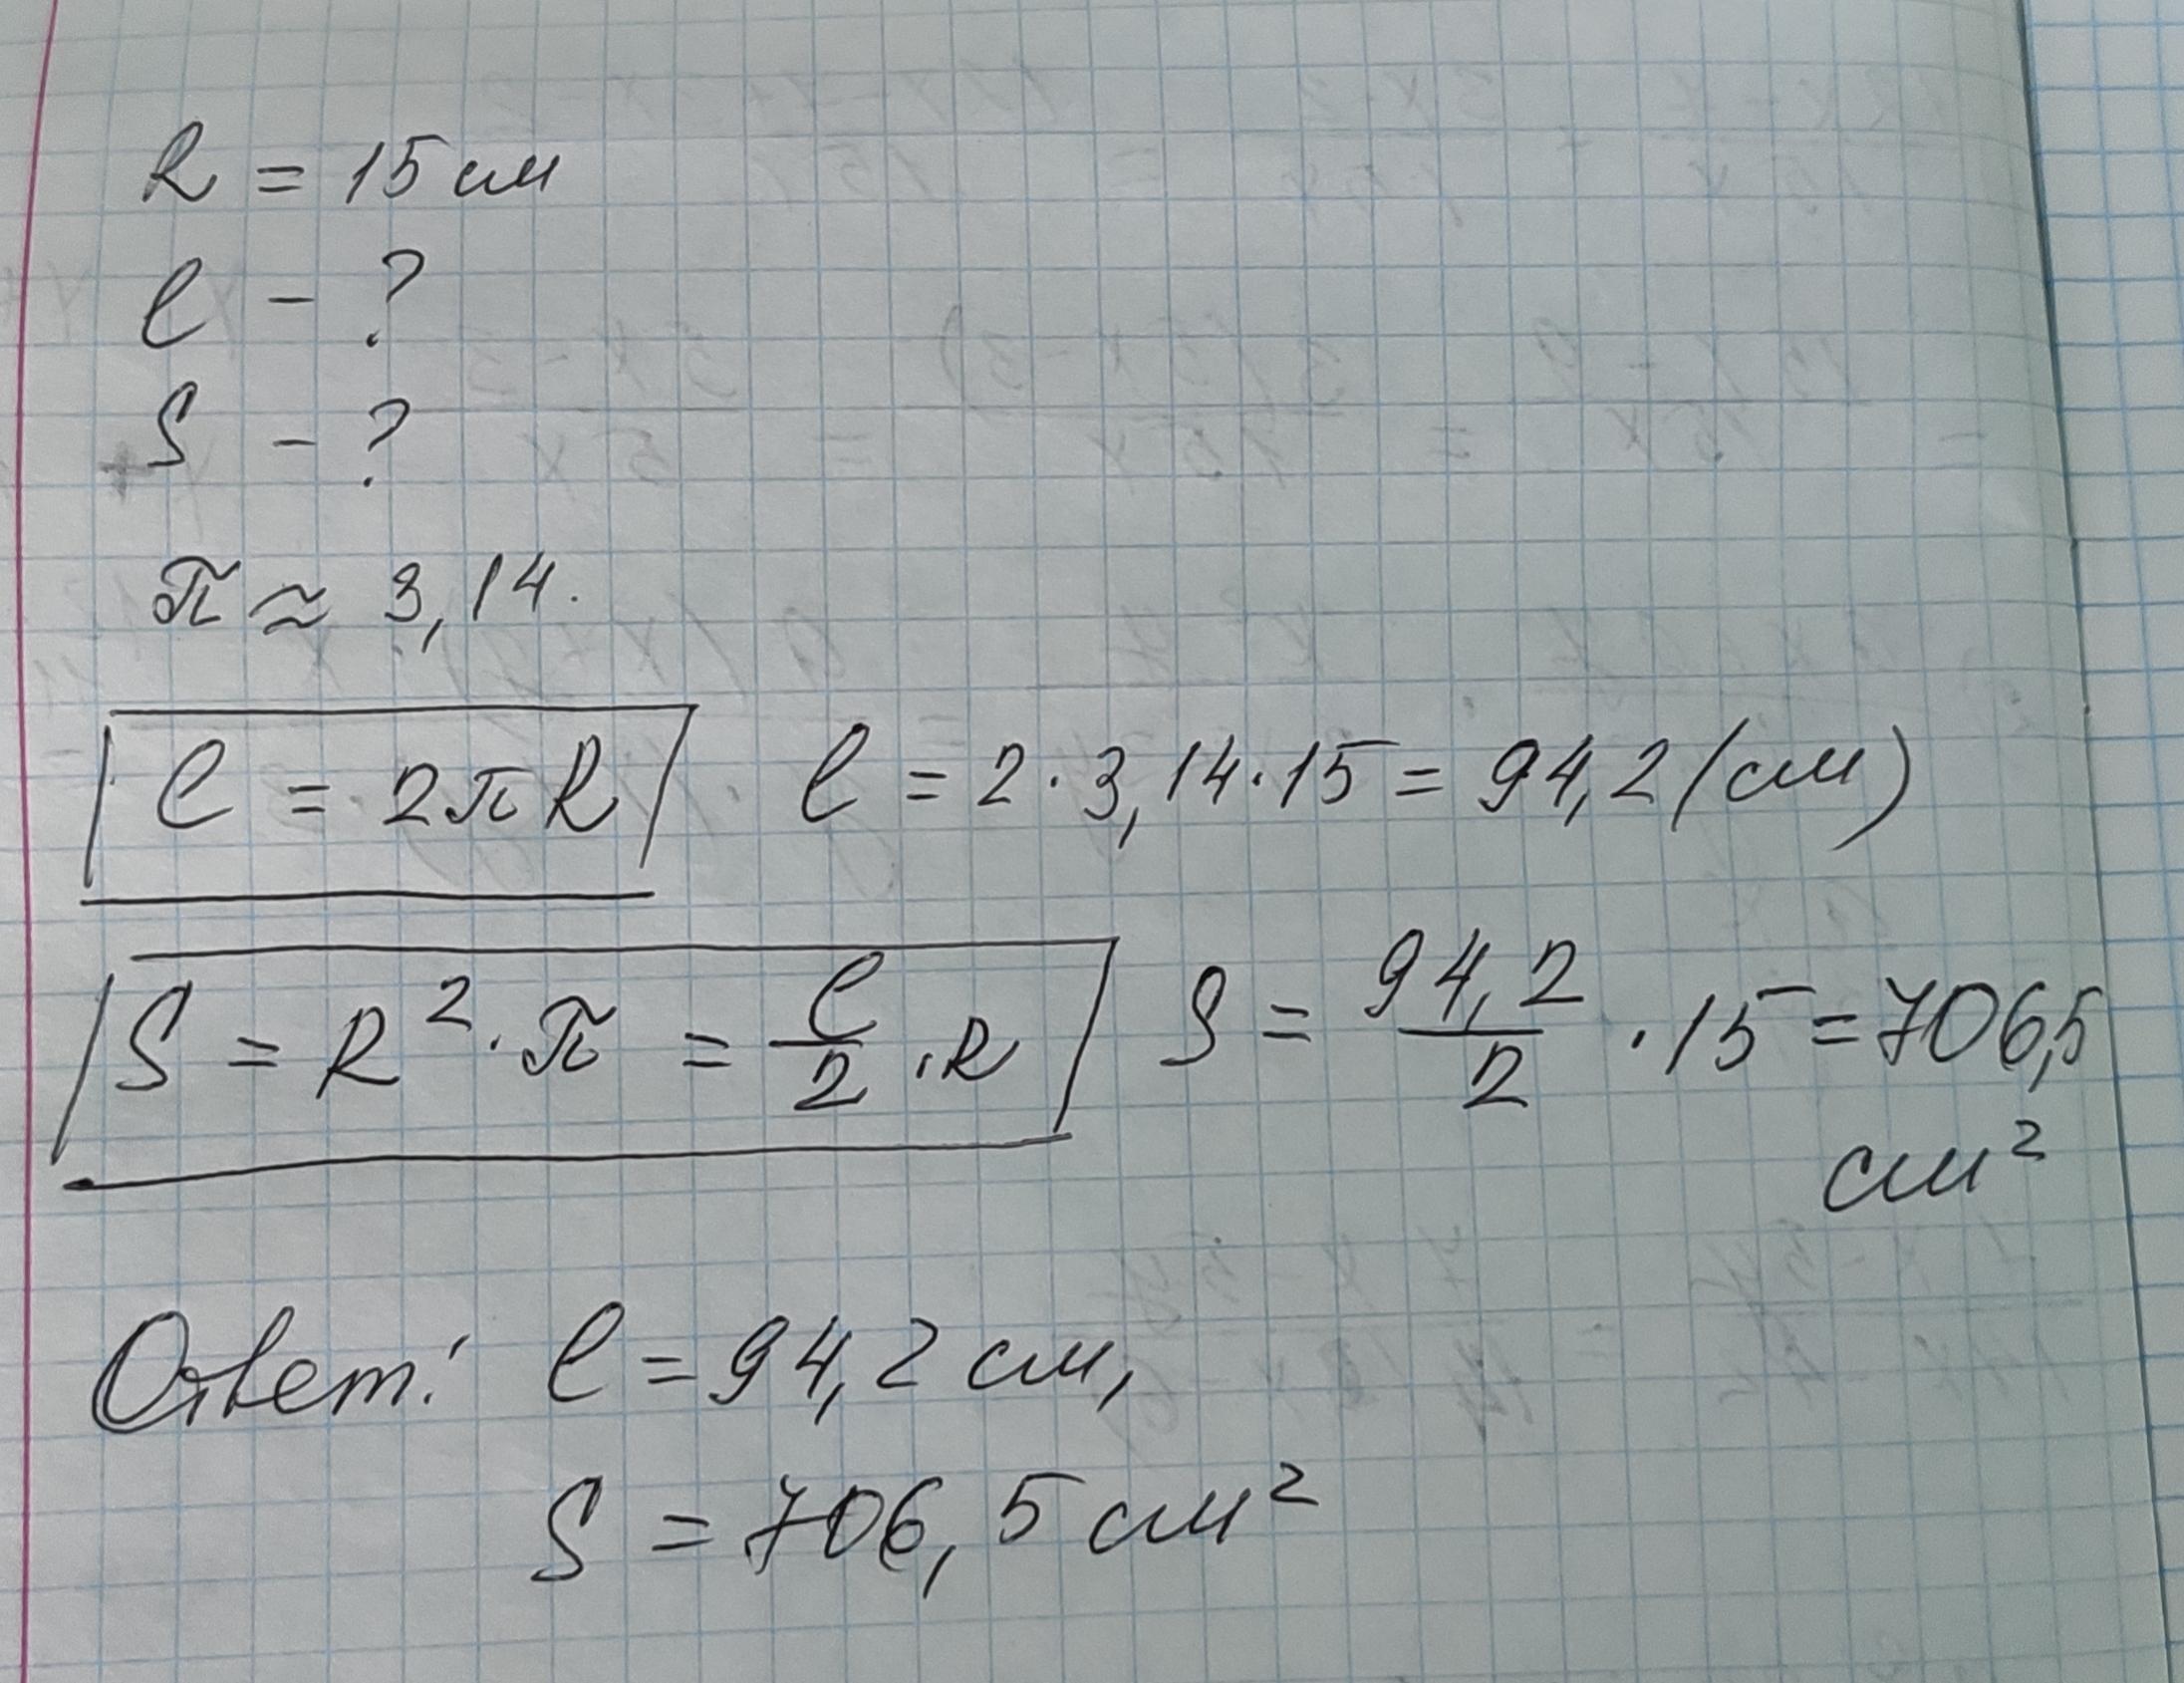 R = 15 см
l - ?
S - ?
π ≈ 3,14.
l = 2πR l = 2 · 3,14 · 15 = 94,2 (см)
S = R² · π = l/2 · R S = 94,2/2 · 15 = 706,5
см²
Ответ: l = 94,2 см,
S = 706,5 см²